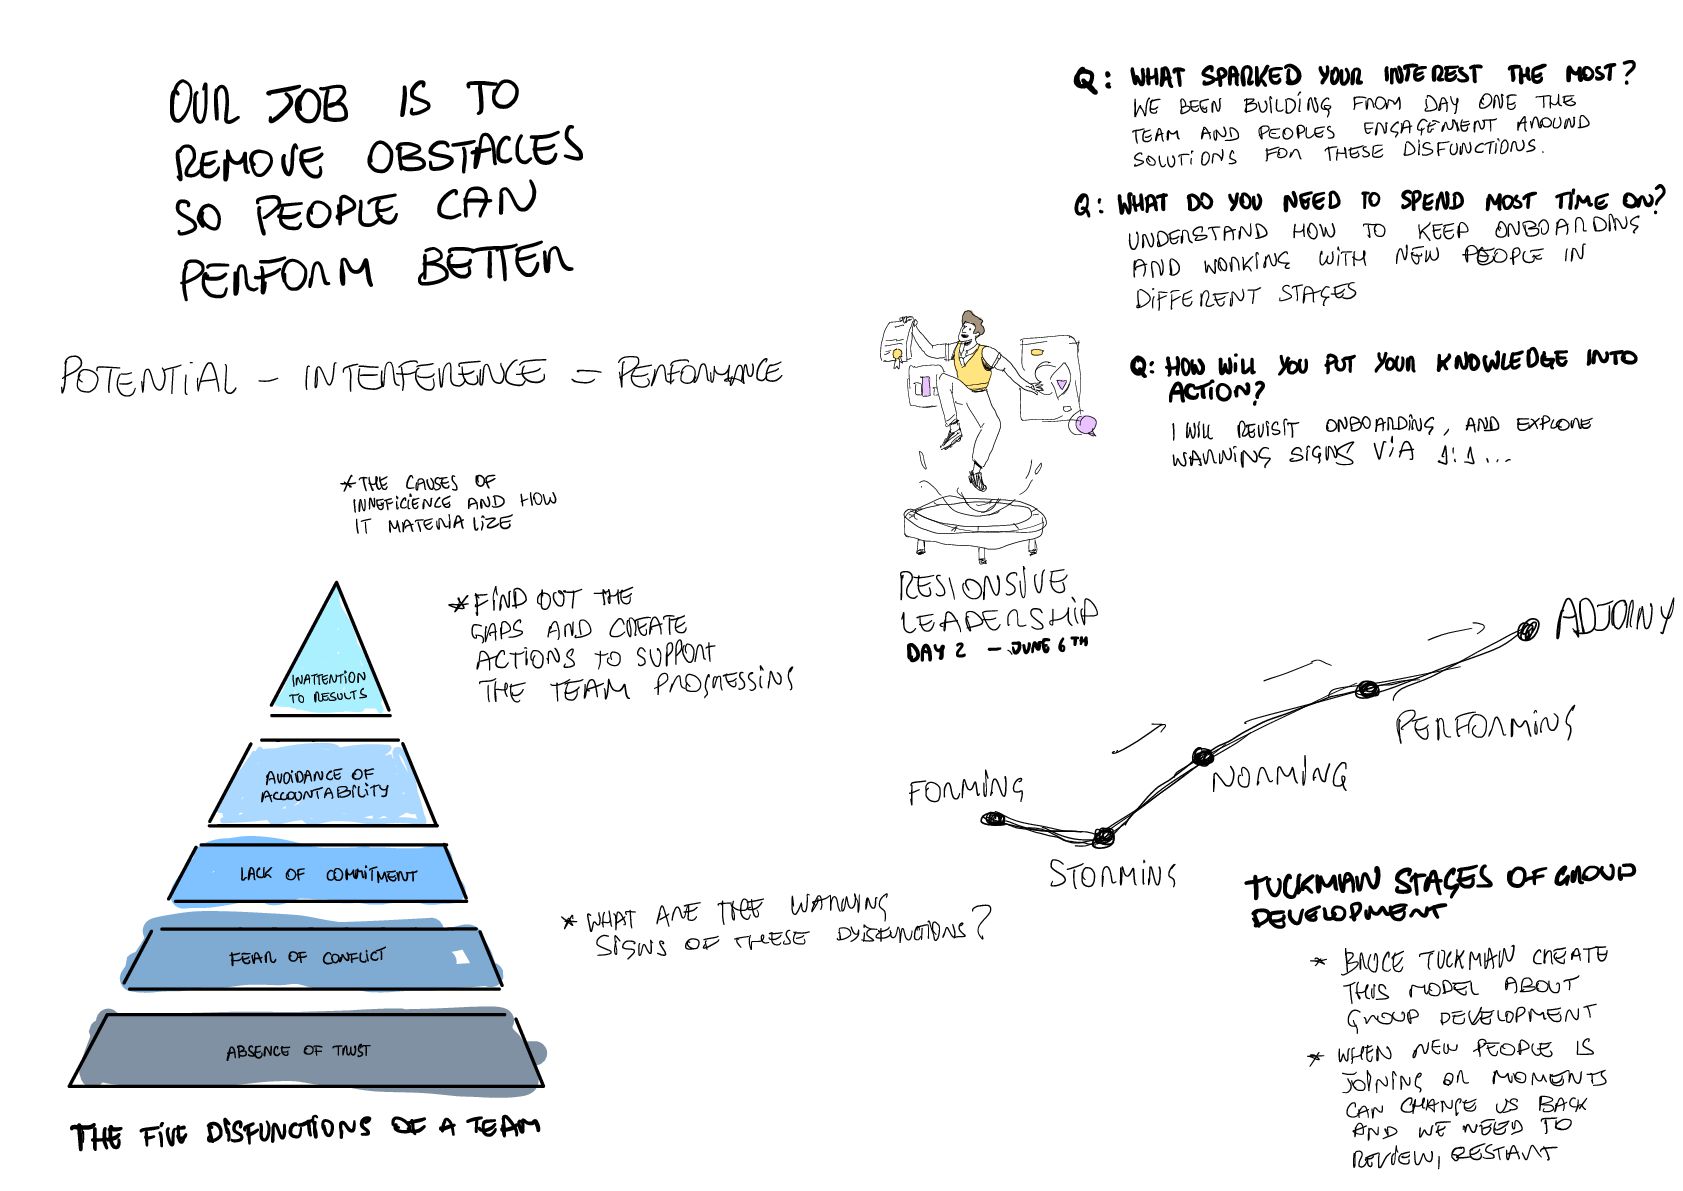 OUR JOB IS TO
REMOVE OBSTACLES
SO PEOPLE CAN
PERFORM BETTER
POTENTIAL - INTERFERENCE = PERFORMANCE
* THE CAUSES OF
INNEFICIENCE AND HOW
IT MATERIALIZE
* FIND OUT THE
GAPS AND CREATE
ACTIONS TO SUPPORT
THE TEAM PROGRESSING
INATTENTION
TO RESULTS
AVOIDANCE OF
ACCOUNTABILITY
LACK OF COMMITMENT
FEAR OF CONFLICT
ABSENCE OF TRUST
* WHAT ARE THE WARNING
SIGNS OF THESE DYSFUNCTIONS?
THE FIVE DISFUNCTIONS OF A TEAM
Q: WHAT SPARKED YOUR INTEREST THE MOST?
WE BEEN BUILDING FROM DAY ONE THE
TEAM AND PEOPLES ENGAGEMENT AROUND
SOLUTIONS FOR THESE DISFUNCTIONS.
Q: WHAT DO YOU NEED TO SPEND MOST TIME ON?
UNDERSTAND HOW TO KEEP ONBOARDING
AND WORKING WITH NEW PEOPLE IN
DIFFERENT STAGES
Q: HOW WILL YOU PUT YOUR KNOWLEDGE INTO
ACTION?
I WILL REVISIT ONBOARDING, AND EXPLORE
WARNING SIGNS VIA 1:1...
RESIONSIVE
LEADERSHIP
DAY 2 - JUNE 6TH
FORMING
STORMING
NORMING
PERFORMING
ADJORNY
TUCKMAN STAGES OF GROUP
DEVELOPMENT
* BRUCE TUCKMAN CREATE
THIS MODEL ABOUT
GROUP DEVELOPMENT
* WHEN NEW PEOPLE IS
JOINING OR MOMENTS
CAN CHANGE US BACK
AND WE NEED TO
REVIEW, RESTART